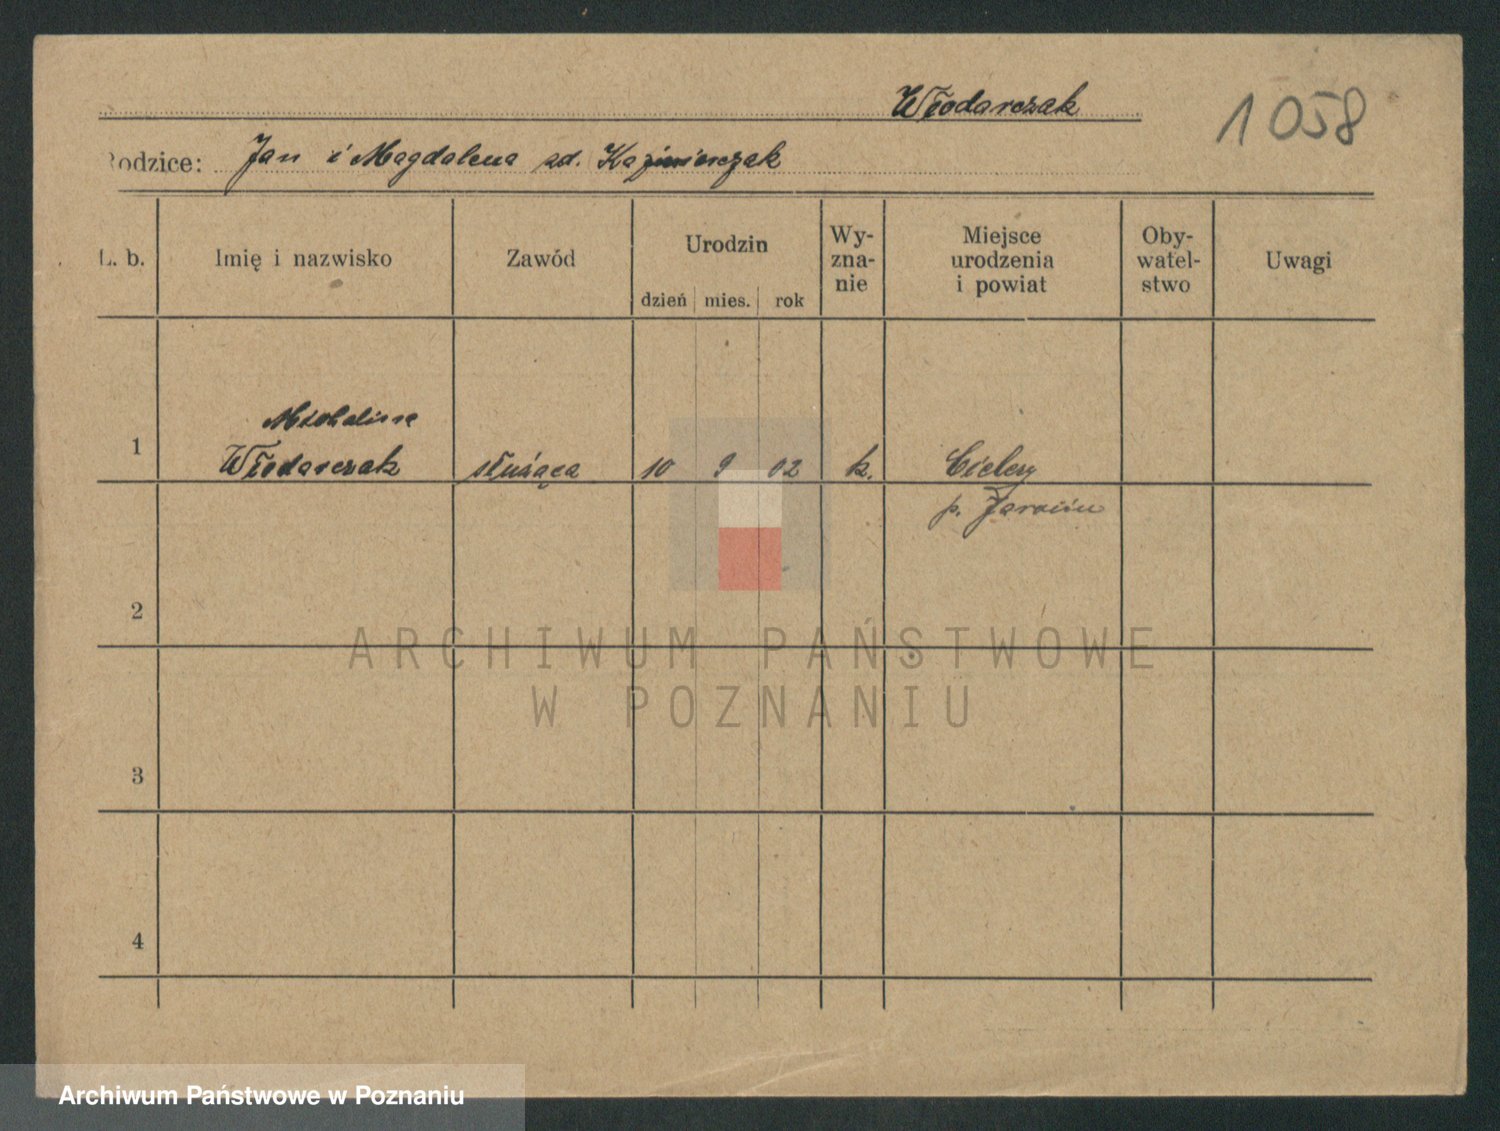 Włodarczak
1058
Rodzice: Jan i Magdalena zd. Kaźmierczak
L. b.
Imię i nazwisko
Zawód
Urodzin
dzień mies. rok
Wy-
zna-
nie
Miejsce
urodzenia
i powiat
Oby-
watel-
stwo
Uwagi
Michalina
1 Włodarczak służąca 10 9 02 k. Cielcza
p. Jarocin
2
3
4
ARCHIWUM PAŃSTWOWE
W POZNANIU
Archiwum Państwowe w Poznaniu